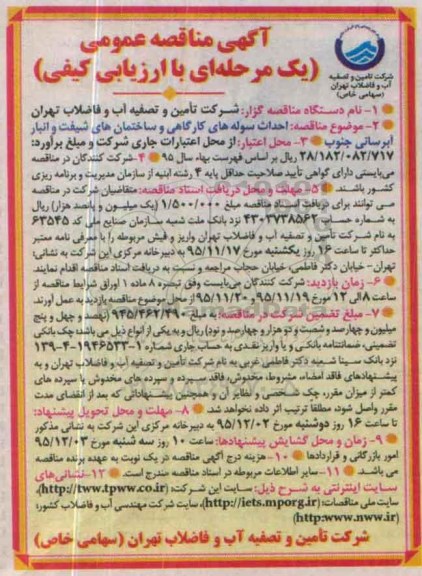 آگهی مناقصه عمومی
(یک مرحله‌ای با ارزیابی کیفی)
شرکت تأمین و تصفیه
آب و فاضلاب تهران
(سهامی خاص)
۱- نام دستگاه مناقصه گزار: شرکت تأمین و تصفیه آب و فاضلاب تهران
۲- موضوع مناقصه: احداث سوله های کارگاهی و ساختمان های شیفت و انبار
آبرسانی جنوب ۳- محل اعتبار: از محل اعتبارات جاری شرکت و مبلغ برآورد:
۲۸/۱۸۲/۰۸۲/۷۱۷ ریال بر اساس فهرست بهاء سال ۹۵ ۴- شرکت کنندگان در مناقصه
می‌بایستی دارای گواهی تأیید صلاحیت حداقل پایه ۴ رشته ابنیه از سازمان مدیریت و برنامه ریزی
کشور باشند. ۵- مهلت و محل دریافت اسناد مناقصه: متقاضیان شرکت در مناقصه
می توانند برای دریافت اسناد مناقصه مبلغ ۱/۵۰۰/۰۰۰ (یک میلیون و پانصد هزار) ریال
به شماره حساب ۴۳۰۳۷۳۸۵۶۲ نزد بانک ملت شعبه سازمان صنایع ملی کد ۶۳۵۴۵
به نام شرکت تأمین و تصفیه آب و فاضلاب تهران واریز و فیش مربوطه را با معرفی نامه معتبر
حداکثر تا ساعت ۱۶ روز یکشنبه مورخ ۹۵/۱۱/۱۷ به دبیرخانه مرکزی این شرکت به نشانی:
تهران - خیابان دکتر فاطمی، خیابان حجاب مراجعه و نسبت به دریافت اسناد مناقصه اقدام نمایند.
۶- زمان بازدید: شرکت کنندگان می‌بایست وفق تبصره ۸ ماده ۱ اوراق شرایط مناقصه از
ساعت ۸ الی ۱۲ مورخ ۹۵/۱۱/۱۹ و ۹۵/۱۱/۲۰ از محل موضوع مناقصه بازدید به عمل آورند.
۷- مبلغ تضمین شرکت در مناقصه: به مبلغ ۹۴۵/۴۶۲/۴۹۰ (نهصد و چهل و پنج
میلیون و چهارصد و شصت و دو هزار و چهارصد و نود) ریال و به یکی از انواع ذیل می باشد: چک بانکی
تضمینی، ضمانتنامه بانکی و یا واریز نقدی به حساب جاری شماره ۱-۱۹۴۶۵۳۳-۴-۱۳۹
نزد بانک سینا شعبه دکتر فاطمی غربی به نام شرکت تأمین و تصفیه آب و فاضلاب تهران و به
پیشنهادهای فاقد امضاء، مشروط، مخدوش، فاقد سپرده و سپرده های مخدوش یا سپرده های
کمتر از میزان مقرر، چک شخصی و نظایر آن و همچنین پیشنهاداتی که بعد از انقضای مدت
مقرر واصل شود، مطلقاً ترتیب اثر داده نخواهد شد. ۸- مهلت و محل تحویل پیشنهاد:
تا ساعت ۱۶ روز دوشنبه مورخ ۹۵/۱۲/۰۲ به دبیرخانه مرکزی این شرکت به نشانی مذکور
۹- زمان و محل گشایش پیشنهادها: ساعت ۱۰ روز سه شنبه مورخ ۹۵/۱۲/۰۳
امور بازرگانی و قراردادها ۱۰- هزینه درج آگهی مناقصه در یک نوبت به عهده برنده مناقصه
می باشد. ۱۱- سایر اطلاعات مربوطه در اسناد مناقصه مندرج است. ۱۲- نشانی‌های
سایت اینترنتی به شرح ذیل: سایت این شرکت: (http://tww.tpww.co.ir)،
سایت ملی مناقصات: (http://iets.mporg.ir)، سایت شرکت مهندسی آب و فاضلاب کشور:
(http:www.nww.ir)
شرکت تأمین و تصفیه آب و فاضلاب تهران (سهامی خاص)